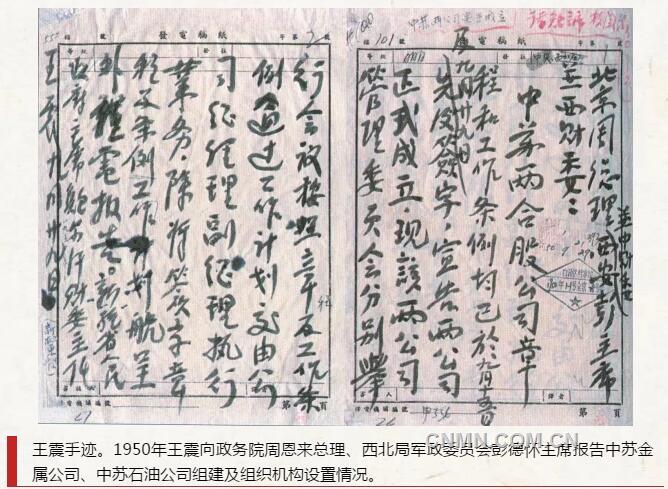 發電稿紙
北京周总理西安彭主席
中苏两合股公司章
程和工作条例均已於
先後簽字,宣告两公司
正式成立,现該两公司
管理委员会分别舉
發電稿紙
行会议按照章程及工作条
例通过工作计划交由公
司经理副经理执行
業务。除将签字章
程及条例工作计划航呈
外谨电报告。新疆省人民
政府主席鲍尔汗财委主任
王震九月廿九日
CNMN.COM.CN
王震手迹。1950年王震向政务院周恩来总理、西北局军政委员会彭德怀主席报告中苏金
属公司、中苏石油公司组建及组织机构设置情况。